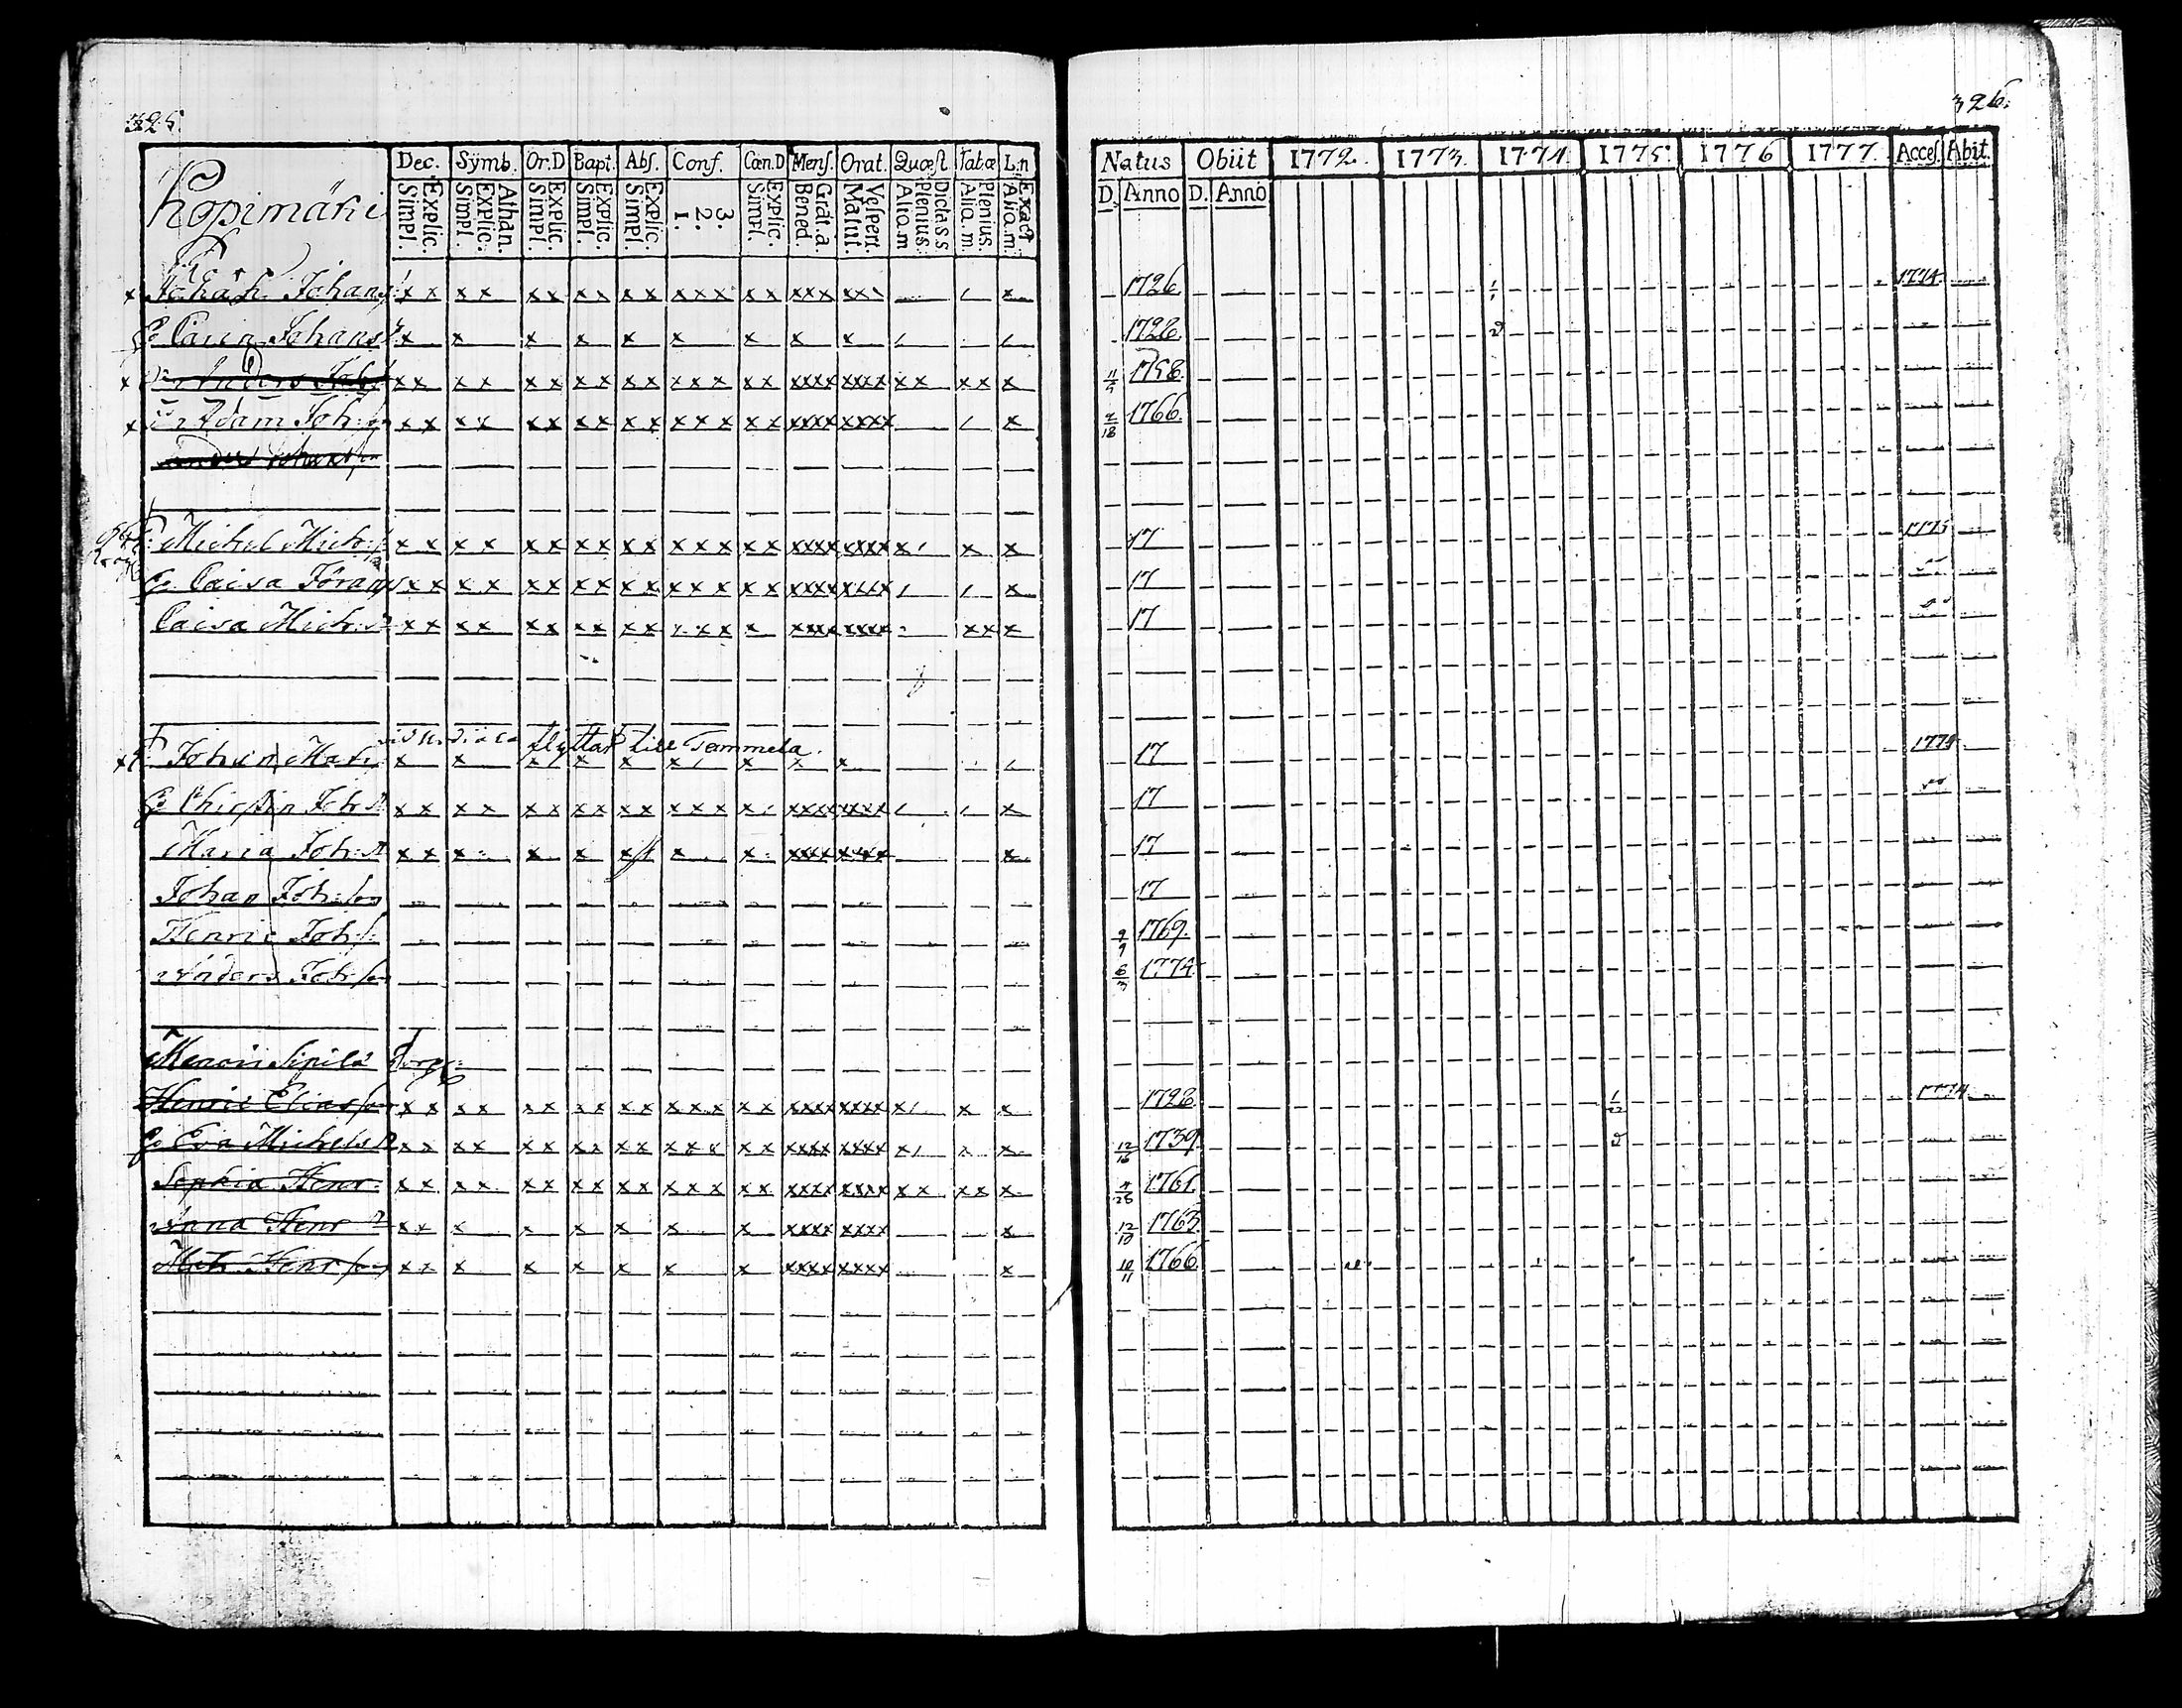 325.
326.
Dec. Symb. Or.D Bapt. Abs. Conf. Cœn.D Mens. Orat. Quæst. Tabæ L.n
Explic. Simpl. Athan. Explic. Simpl. Explic. Simpl. Explic. Simpl. Explic. Simpl. 3. 2. 1. Explic. Simpl. Grat. a. Bened. Vespert. Matut. D:class Plenius. Aliq.m Plenius. Aliq.m. Exact Aliq.m.
Natus Obiit 1772. 1773. 1774. 1775. 1776 1777. Acces. Abit.
D. Anno D. Anno
Kopimäki
Johan Johans x x x x x x x x x x x x x x x x x x x x x 1726 1774.
Carin Johans x x x x x x x x x 1728.
x x x x x x x x x x x x x x x x x x x x x x x x x x x x 11/9 1758.
Adam Joh: x x x x x x x x x x x x x x x x x x x x x x x x 1766.
Michel Mich: x x x x x x x x x x x x x x x x x x x x x x x x x x 17 1775
Caisa Jörans x x x x x x x x x x x x x x x x x x x x x x x x 17
Caisa Mich: x x x x x x x x x x x x x x x x x x x x x x x 17
flyttat till Tammela.
Johan Mats x x x x x x x x x 17 1774
Chirstin Joh: x x x x x x x x x x x x x x x x x x x x x x x 17
Maria Joh: x x x x x x x x x x x x x x x x x 17
Johan Joh:son 17
Henric Joh: 9/9 1769.
Anders Joh:son 6/3 1774.
Sipilä Torp:
Henric Eliasson x x x x x x x x x x x x x x x x x x x x x x x x x x 1728. 1/22 1774
Eva Michels x x x x x x x x x x x x x x x x x x x x x x x x x x 12/16 1739
Sophia Henr: x x x x x x x x x x x x x x x x x x x x x x x x x x x x 1761.
Anna Henr x x x x x x x x x x x x x x x x x 12/10 1763
Mich Henr x x x x x x x x x x x x x x x x x 10/11 1766